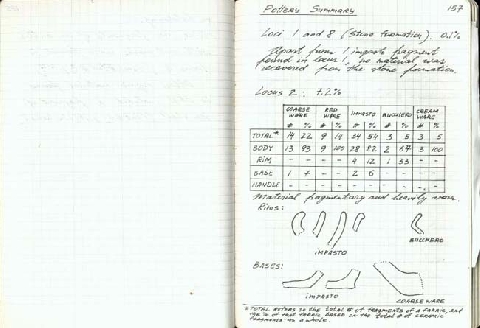 Pottery Summary 157
Loci 1 and 8 (stone formation). 0.1%
Apart from 1 impasto fragment
found in locus 1, no material was
recovered from the stone formation.
Locus 2: 7.2%
COARSE WARE RED WARE IMPASTO BUCCHERO CREAM WARE
# % # % # % # % # %
TOTAL* 14 22 9 14 34 54 3 5 3 5
BODY 13 93 9 100 28 82 2 67 3 100
RIM - - - - 4 12 1 33 - -
BASE 1 7 - - 2 6 - - - -
HANDLE - - - - - - - - - -
Material fragmentary and heavily worn.
Rims:
IMPASTO BUCCHERO
BASES:
IMPASTO COARSE WARE
* TOTAL refers to the total # of fragments of a fabric, and
the % of that fabric based on the total # of ceramic
fragments as a whole.